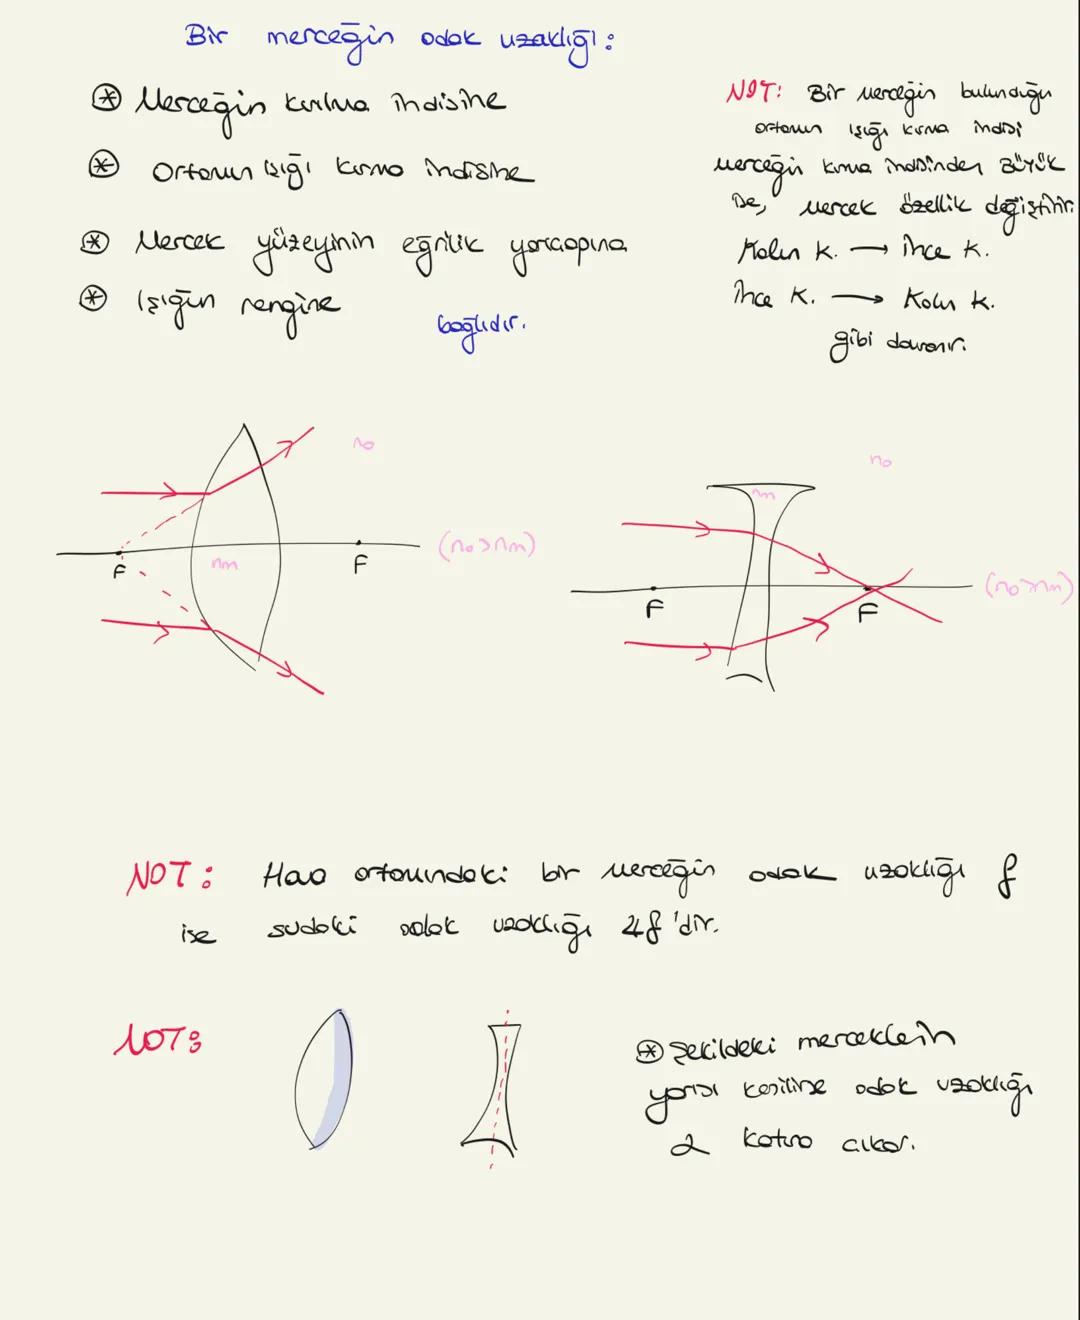 Bir merceğin odak uzaklığı:
⊛ Merceğin kırılma indisine
⊛ Ortamın ışığı kırma indisine
⊛ Mercek yüzeyinin eğrilik yarıçapına
⊛ Işığın rengine
bağlıdır.
NOT: Bir merceğin bulunduğu
ortamın ışığı kırma indisi
merceğin kırma indisinden BÜYÜK
ise, mercek özellik değiştirir.
Kalın K. → İnce K.
İnce K. → Kalın K.
gibi davranır.
no
F
nm
F
(no>nm)
no
nm
F
F
(no>nm)
NOT: Hava ortamındaki bir merceğin odak uzaklığı f
ise sudaki odak uzaklığı 4f'dir.
NOT:
⊛ Şekildeki merceklerin
yarısı kesilirse odak uzaklığı
2 katına çıkar.